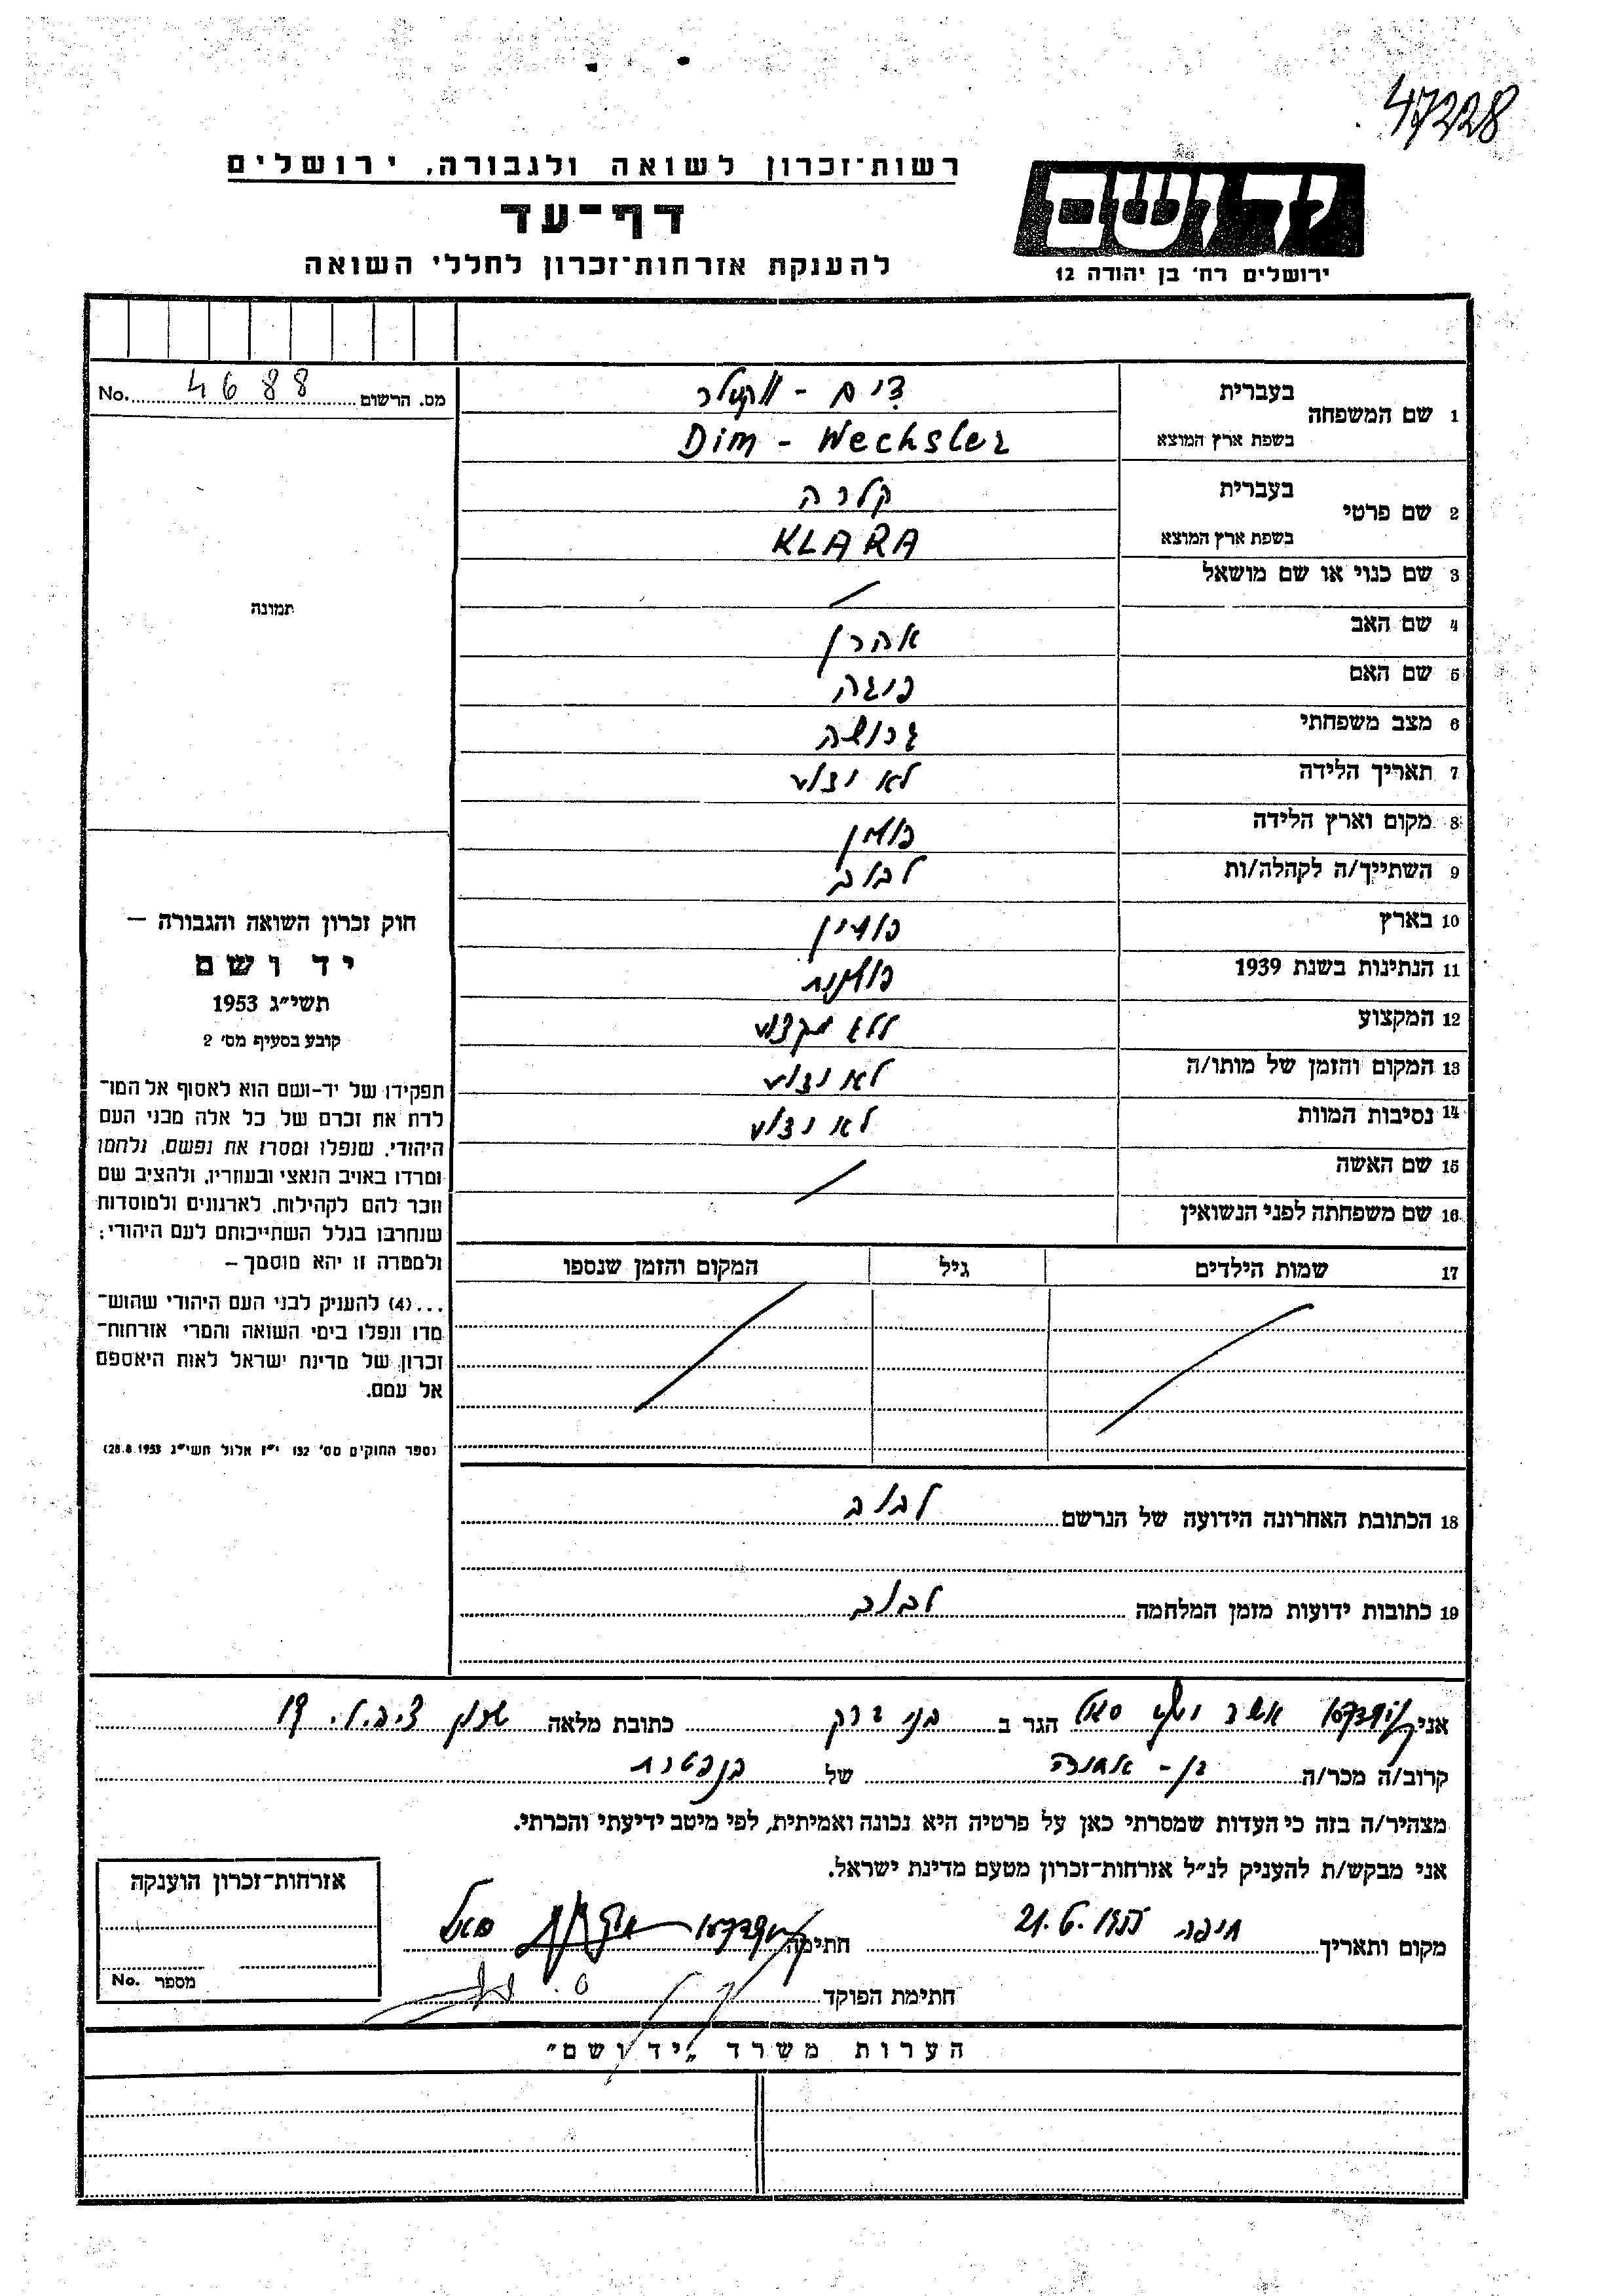 47228
רשות־זכרון לשואה ולגבורה, ירושלים
דף־עד
להענקת אזרחות־זכרון לחללי השואה
יד ושם
ירושלים רח׳ בן יהודה 12
מס. הרשום 4688 No.
תמונה
1 שם המשפחה בעברית דים - וקסלר
בשפת ארץ המוצא Dim - Wechsler
2 שם פרטי בעברית קלרה
בשפת ארץ המוצא KLARA
3 שם כנוי או שם מושאל /
4 שם האב אהרן
5 שם האם
6 מצב משפחתי גרושה
7 תאריך הלידה לא ידוע
8 מקום וארץ הלידה פולין
9 השתייך/ה לקהלה/ות לבוב
10 בארץ פולין
11 הנתינות בשנת 1939 פולנית
12 המקצוע ללא מקצוע
13 המקום והזמן של מותו/ה לא ידוע
14 נסיבות המוות לא ידוע
15 שם האשה /
16 שם משפחתה לפני הנשואין
17 שמות הילדים גיל המקום והזמן שנספו
18 הכתובת האחרונה הידועה של הנרשם לבוב
19 כתובות ידועות מזמן המלחמה לבוב
חוק זכרון השואה והגבורה —
יד ושם
תשי״ג 1953
קובע בסעיף מס׳ 2
תפקידו של יד-ושם הוא לאסוף אל המו־
לדת את זכרם של כל אלה מבני העם
היהודי, שנפלו ומסרו את נפשם, נלחמו
ומרדו באויב הנאצי ובעוזריו, ולהציב שם
וזכר להם לקהילות, לארגונים ולמוסדות
שנחרבו בגלל השתייכותם לעם היהודי;
ולמטרה זו יהא מוסמך —
...(4) להעניק לבני העם היהודי שהוש־
מדו ונפלו בימי השואה והמרי אזרחות־
זכרון של מדינת ישראל לאות היאספם
אל עמם.
(ספר החוקים מס׳ 132 י״ז אלול תשי״ג 28.8.1953)
אני הגר ב בני ברק כתובת מלאה 19
קרוב/ה מכר/ה בן - של הנפטרת
מצהיר/ה בזה כי העדות שמסרתי כאן על פרטיה היא נכונה ואמיתית, לפי מיטב ידיעתי והכרתי.
אני מבקש/ת להעניק לנ״ל אזרחות־זכרון מטעם מדינת ישראל.
מקום ותאריך חיפה 21.6.1955 חתימה
חתימת הפוקד
אזרחות־זכרון הוענקה
מספר No.
הערות משרד „יד ושם״